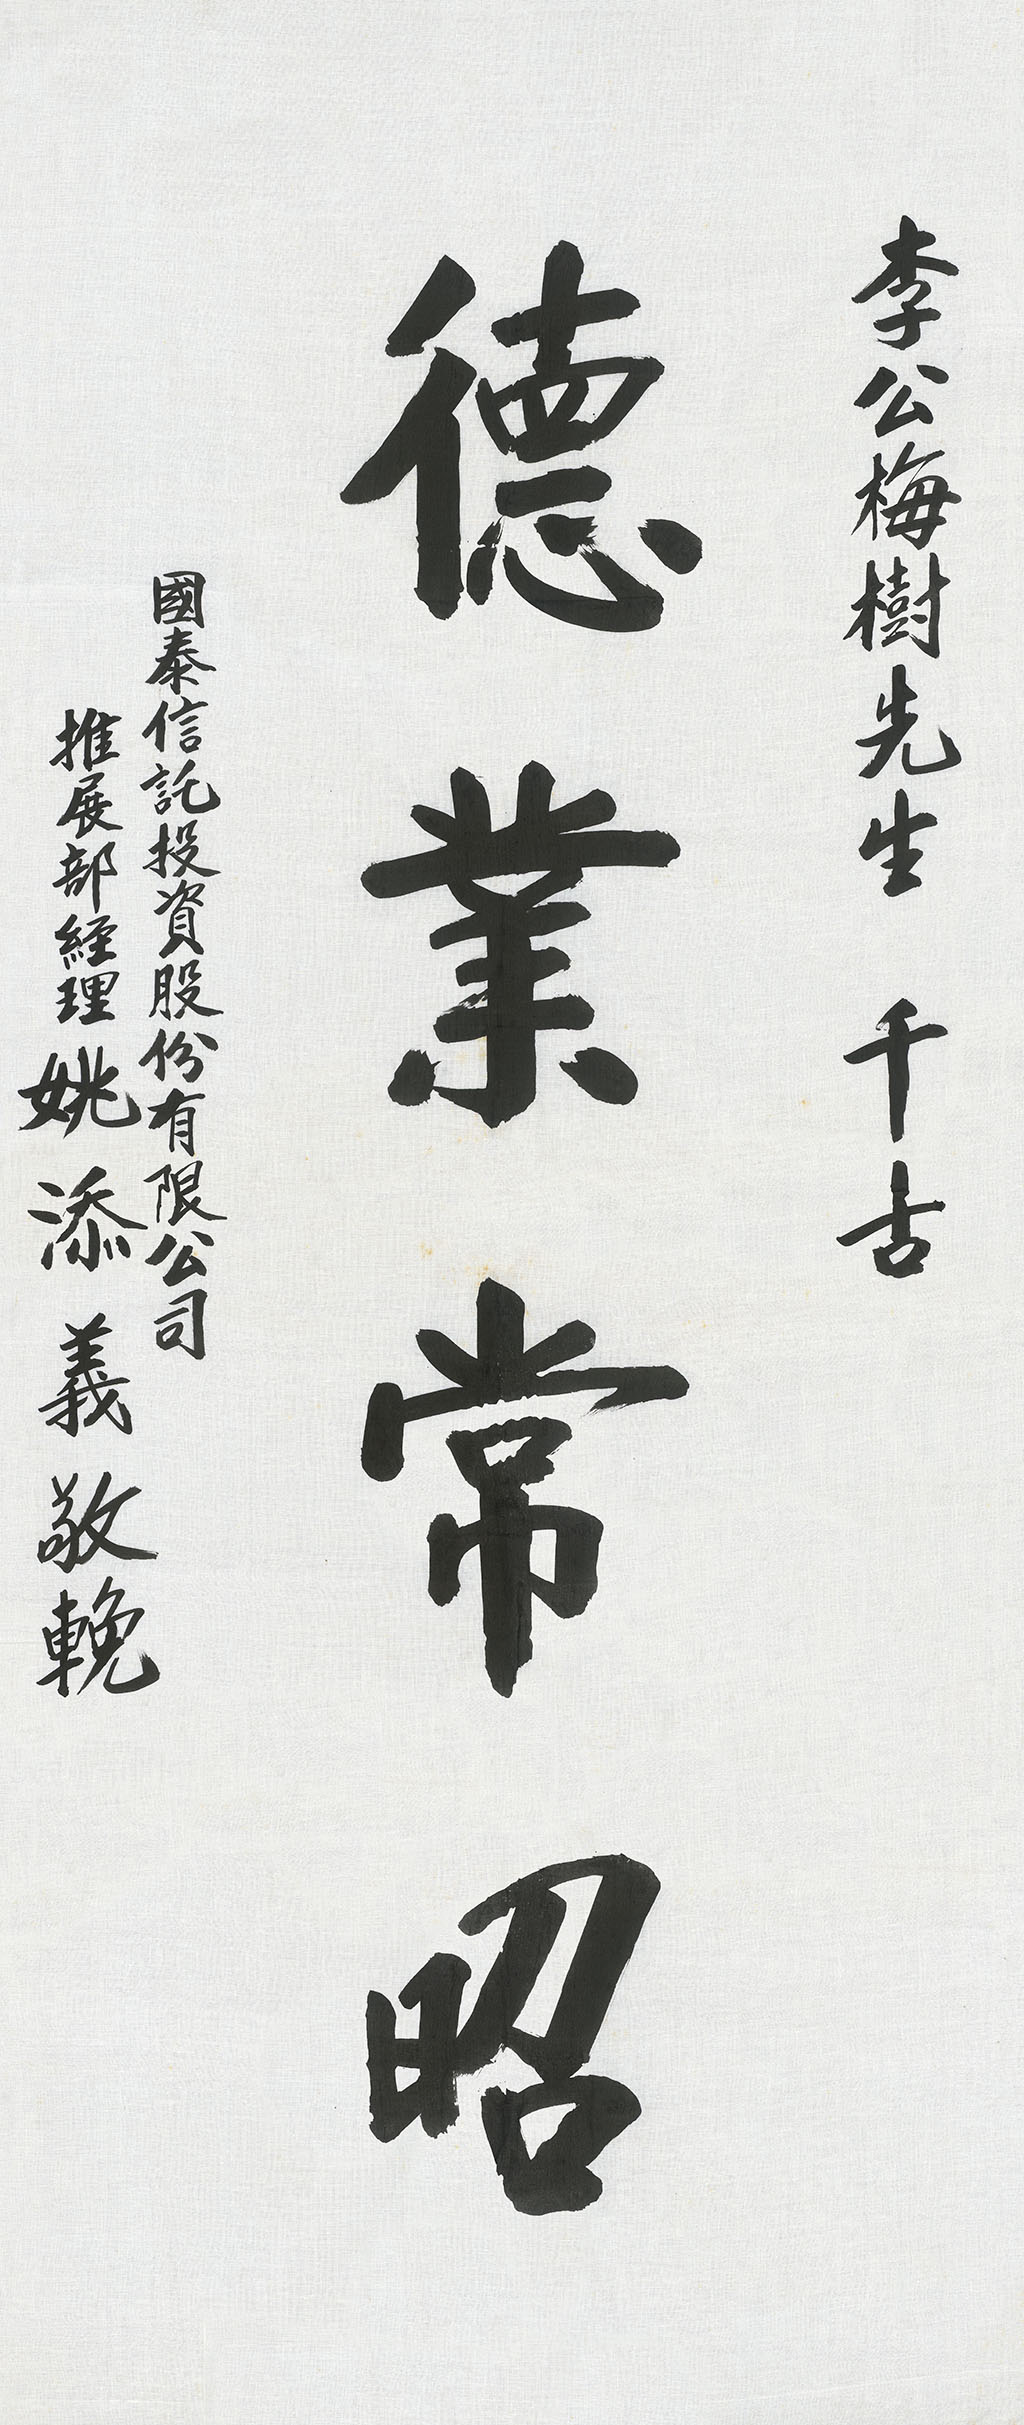 李公梅樹先生 千古
德業常昭
國泰信託投資股份有限公司
推展部經理姚添義敬輓